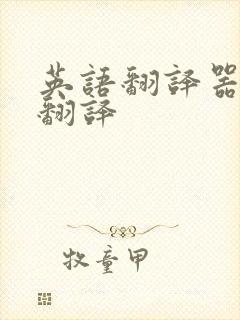 英語翻譯器
翻譯
牧童甲